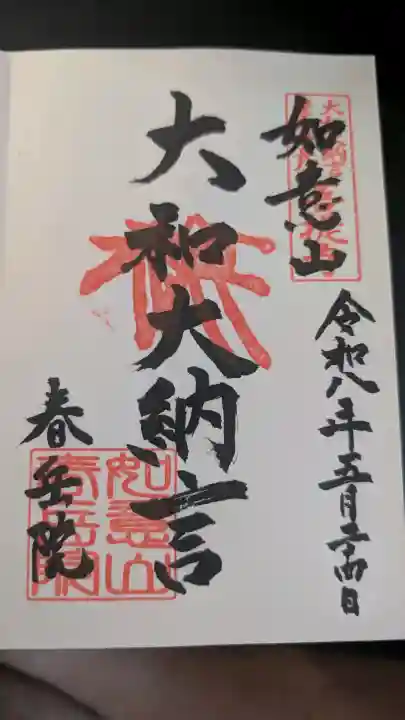 如意山
令和八年五月二十四日
大和大納言
春岳院
如意山
春岳院